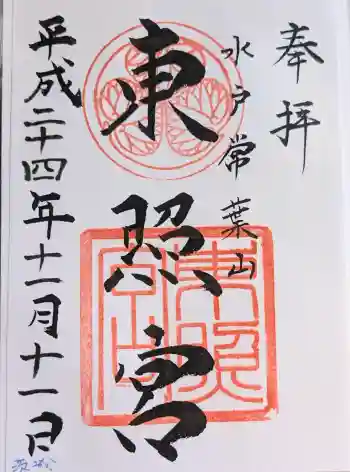 奉拝
水戸常葉山
東照宮
平成二十四年十一月十一日
東照宮印
茨城